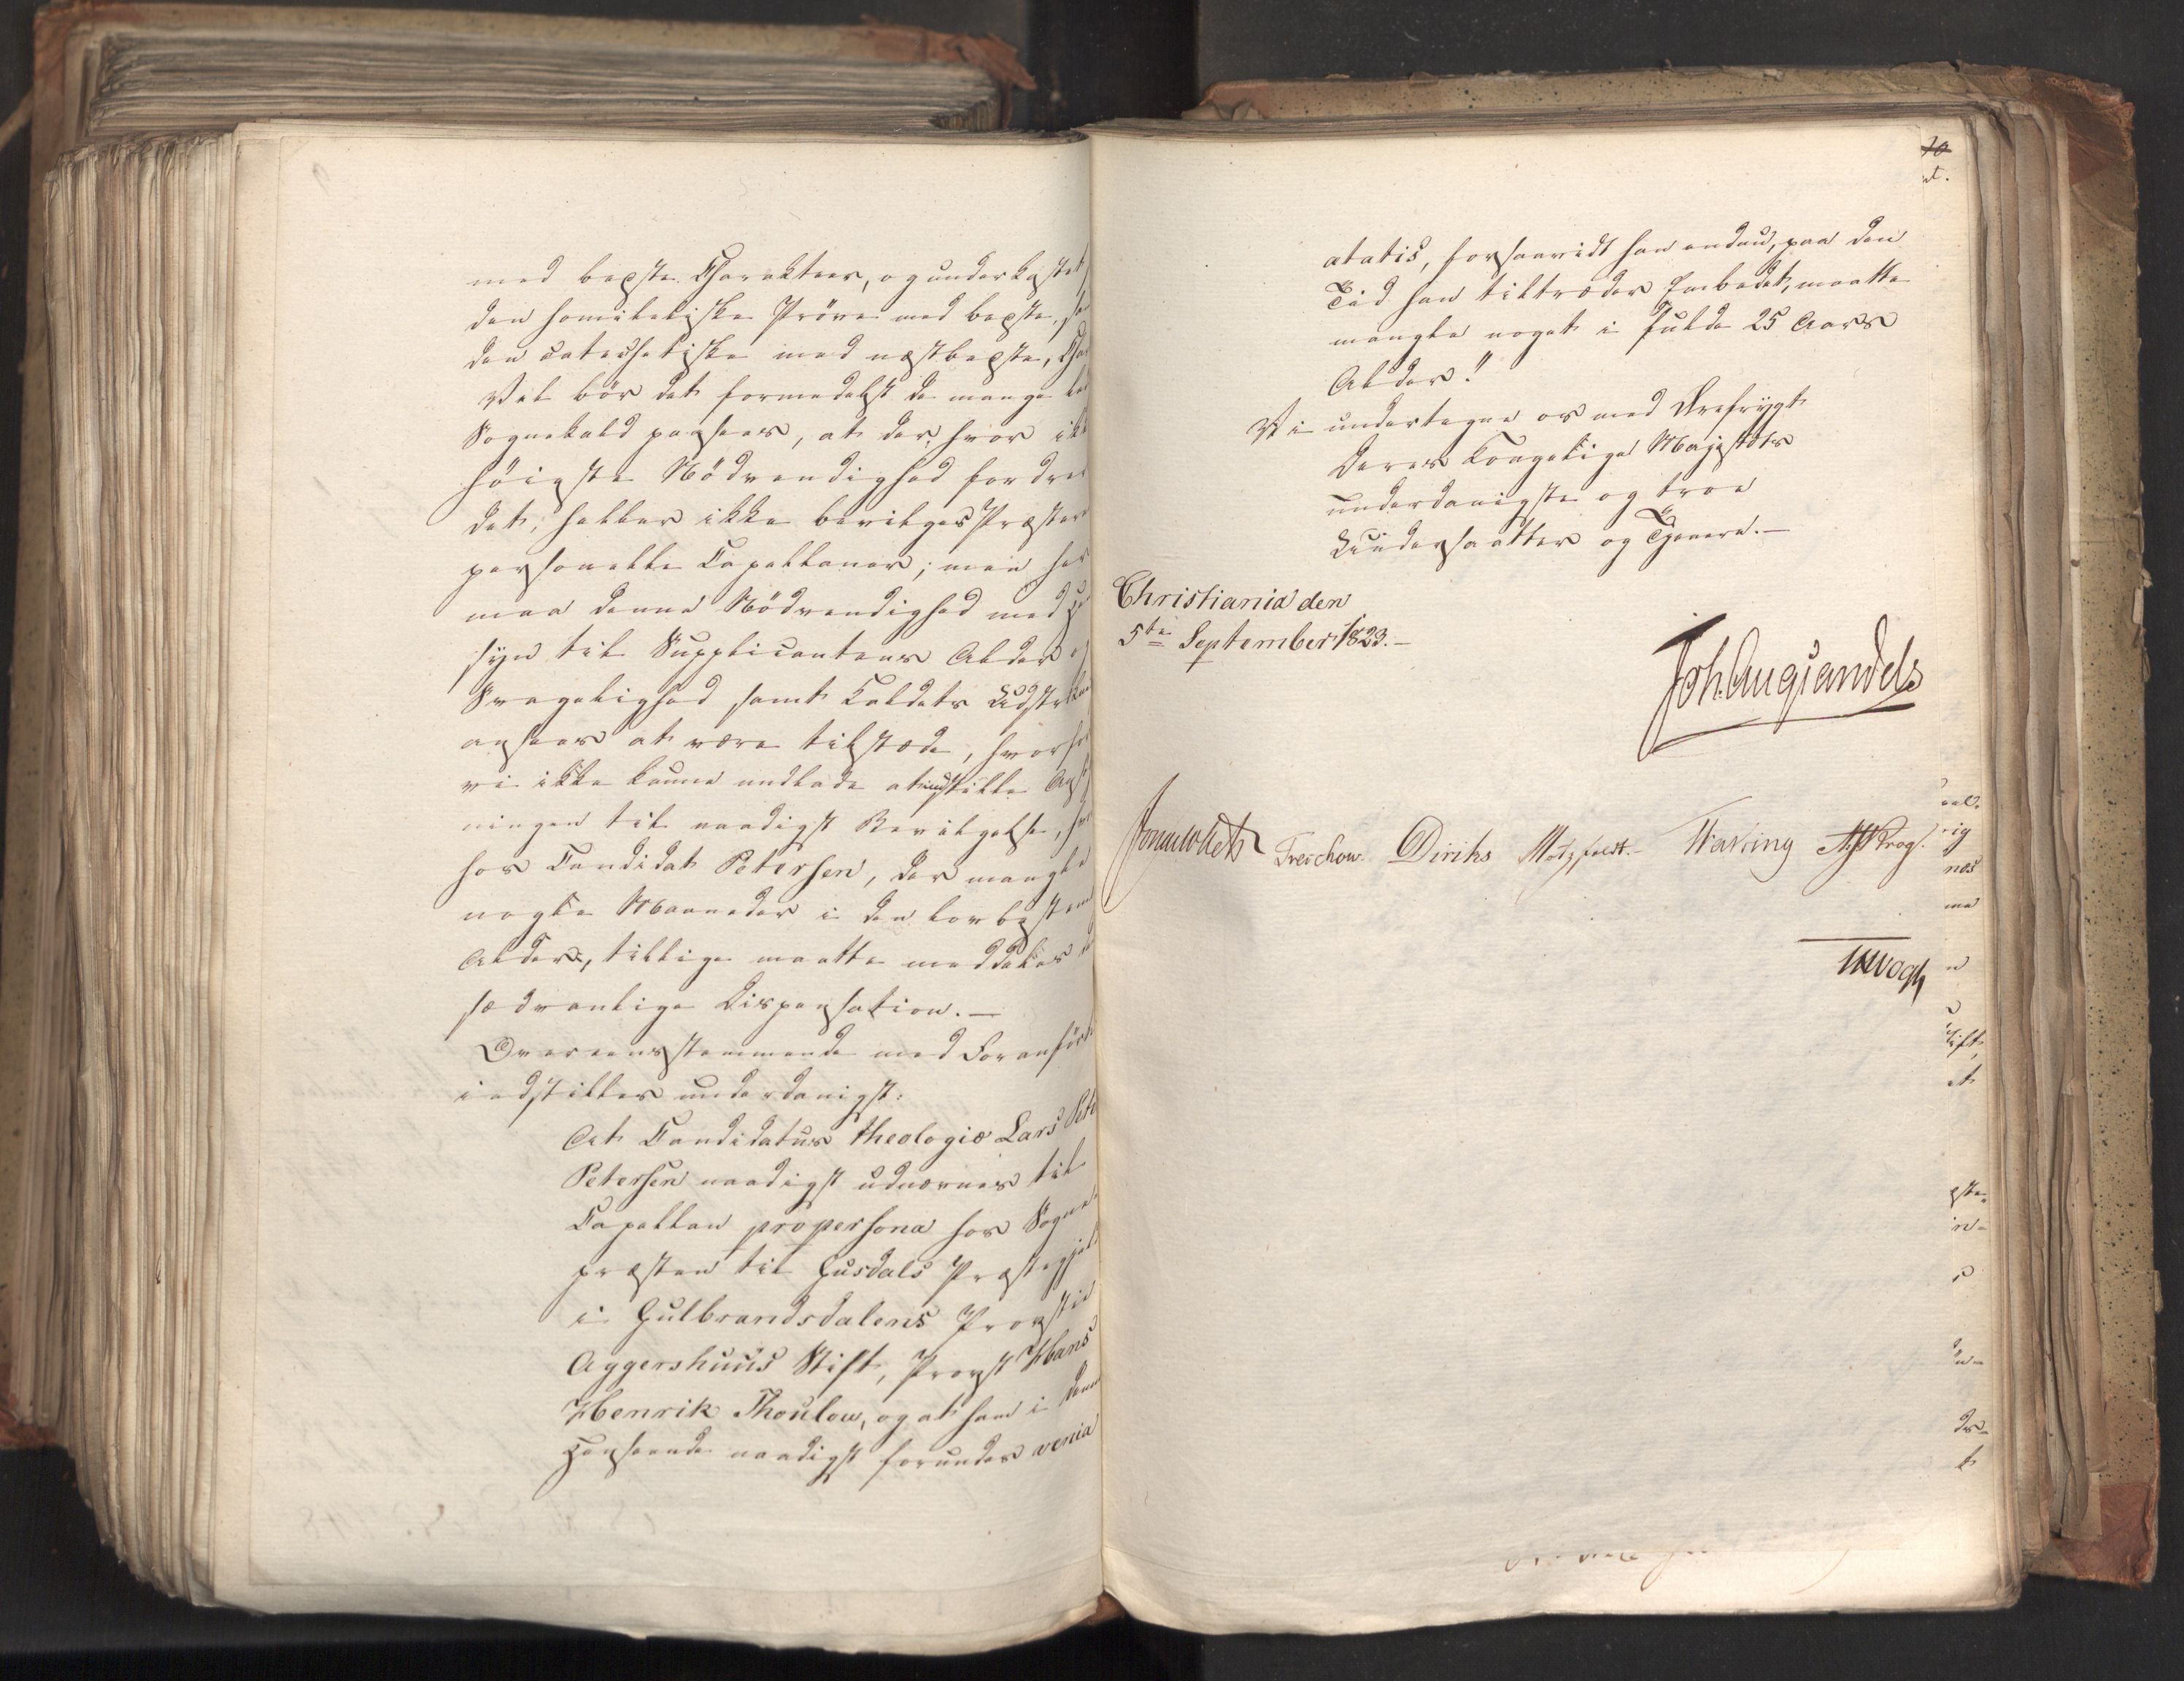 med bedste Charakteer, og underkastet
den homiletiske Prøve med bedste,
den catechetiske med næstbedste,
Vel bør det formedelst de mange
Sognekald paasees, at der, hvor
høieste Nødvendighed fordrer
det, heller ikke bevilges Præsterne
personelle Capellaner; men her
maa denne Nødvendighed med Hen
syn til Supplicantens Alder og
Svagelighed samt Kaldets Udstrækning
ansees at være tilstæde, hvorfor
vi ikke kunne undlade at indstille
ningen til naadigst Bevilgelse,
hos Candidat Petersen, der mangler
nogle Maaneder i den lovbestemte
Alder, tillige maatte meddeles
sædvanlige Dispensation.—
Overeensstemmende med Foranførte
indstilles underdanigst:
At Candidatus theologiæ Lars
Petersen naadigst udnævnes til
Capellan pro persona hos Sogne-
præsten til Gusdals Præstegjeld
i Gulbrandsdalens Provstie
Aggershuus Stift, Provst Hans
Henrik Thoulow, og at han i denne
Henseende naadigst forundes venia
ætatis, forsaavidt han endnu, paa den
Tid han tiltræder Embedet, maatte
mangle noget i fulde 25 Aars
Alder."
Vi undertegne os med Ærefrygt
Deres Kongelige Majestæts
underdanigste og troe
Undersaatter og Tjenere.—
Christiania den
5te September 1823.—
Joh. Aug Sandels
Sommerhielm Treschow. Diriks Motzfeldt.— Fasting Krog.
Vogt